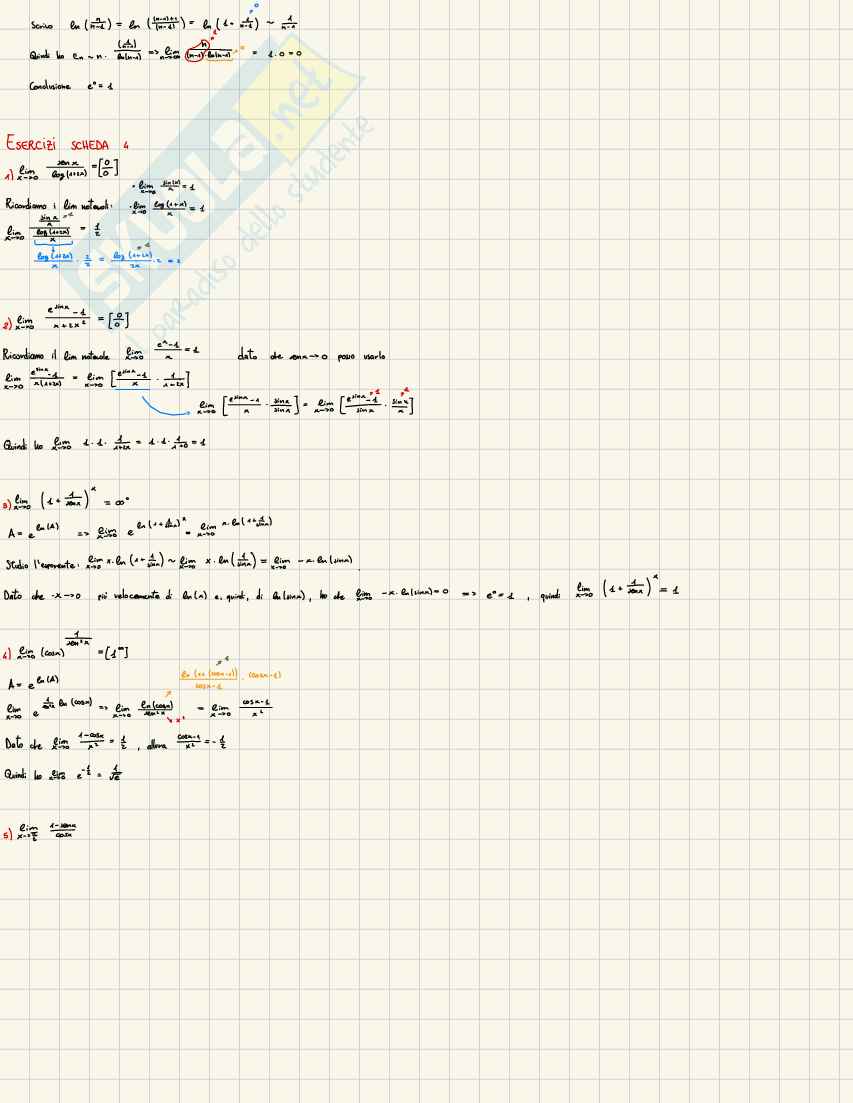 Scrivo ln(n/(n-1)) = ln(((n-1)+1)/(n-1)) = ln(1+ 1/(n-1)) ~ 1/(n-1)
→0
Quindi ho en ~ n · (1/(n-1))/ln(n-1) => lim n→∞ n/((n-1)·ln(n-1)) = 1·0 = 0
Conclusione e⁰ = 1
ESERCIZI SCHEDA 4
1) lim x→0 sen x/log(1+2x) = [0/0]
Ricordiamo i lim notevoli: · lim x→0 sin(x)/x = 1
· lim x→0 log(1+x)/x = 1
lim x→0 (sin x/x)/(log(1+2x)/x) = 1/2
log(1+2x)/x · 2/2 = log(1+2x)/2x · 2 = 2
2) lim x→0 (e^sinx - 1)/(x+2x²) = [0/0]
Ricordiamo il lim notevole lim x→0 (e^x-1)/x = 1 dato che sen x→0 posso usarlo
lim x→0 (e^sinx-1)/(x(1+2x)) = lim x→0 [(e^sinx-1)/x · 1/(1+2x)]
lim x→0 [(e^sinx-1)/x · sinx/sinx] = lim x→0 [(e^sinx-1)/sinx · sinx/x]
Quindi ho lim x→0 1·1· 1/(1+2x) = 1·1· 1/(1+0) = 1
3) lim x→0 (1+ 1/senx)^x = ∞⁰
A = e^ln(A) => lim x→0 e^ln(1+1/sinx)^x = lim x→0 x·ln(1+1/sinx)
Studio l'esponente: lim x→0 x·ln(1+ 1/sinx) ~ lim x→0 x·ln(1/sinx) = lim x→0 -x·ln(sinx)
Dato che -x→0 più velocemente di ln(x) e, quindi, di ln(sinx), ho che lim x→0 -x·ln(sinx)=0 => e⁰=1 , quindi lim x→0 (1+ 1/senx)^x = 1
4) lim x→0 (cosx)^(1/sen²x) = [1^∞]
A = e^ln(A)
ln(1+(cosx-1))/(cosx-1) · cosx-1
lim x→0 e^(1/sen²x ln(cosx)) => lim x→0 ln(cosx)/sen²x = lim x→0 (cosx-1)/x²
→ x²
Dato che lim x→0 (1-cosx)/x² = 1/2 , allora (cosx-1)/x² = -1/2
Quindi ho lim x→0 e^(-1/2) = 1/√e
5) lim x→π/2 (1-senx)/cosx
SKUOLA.net
il paradiso dello studente